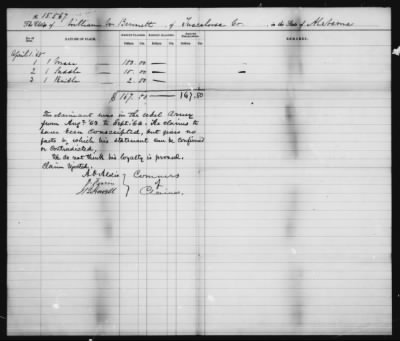 No 15.567
The Claim of William W. Bennett, of Tuscaloosa Co., in the State of Alabama
No. of Item. NATURE OF CLAIM. AMOUNT CLAIMED. AMOUNT ALLOWED. AMOUNT DISALLOWED. REMARKS.
Dollars Cts. Dollars Cts. Dollars Cts.
April 1. 65
1 1
2 1 Saddle
3 1 Bridle 2.00
$ 167. 167.50
This claimant was in the rebel Army
from Aug. '63 to Sept. '64. He claims to
have been conscripted, but gives no
facts by which his statement can be confirmed
or contradicted.
We do not think his loyalty is proved.
Claim rejected.
A.O. Aldis Commrs
J. B. Howell of
Claims.